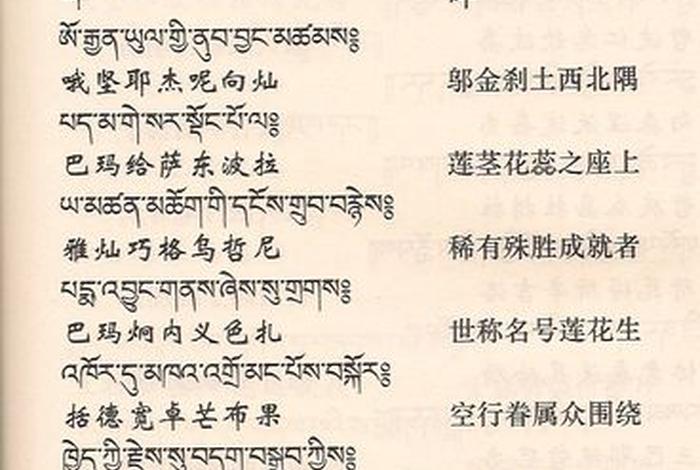 ཨོ་རྒྱན་ཡུལ་གྱི་ནུབ་བྱང་མཚམས༔
哦坚耶杰呢向灿 邬金刹土西北隅
པད་མ་གེ་སར་སྡོང་པོ་ལ༔
巴玛给萨东波拉 莲茎花蕊之座上
ཡ་མཚན་མཆོག་གི་དངོས་གྲུབ་བརྙེས༔
雅灿巧格乌哲尼 稀有殊胜成就者
པདྨ་འབྱུང་གནས་ཞེས་སུ་གྲགས༔
巴玛炯内义色扎 世称名号莲花生
འཁོར་དུ་མཁའ་འགྲོ་མང་པོས་བསྐོར༔
括德宽卓芒布果 空行眷属众围绕
ཁྱེད་ཀྱི་རྗེས་སུ་བདག་བསྒྲུབ་ཀྱིས༔